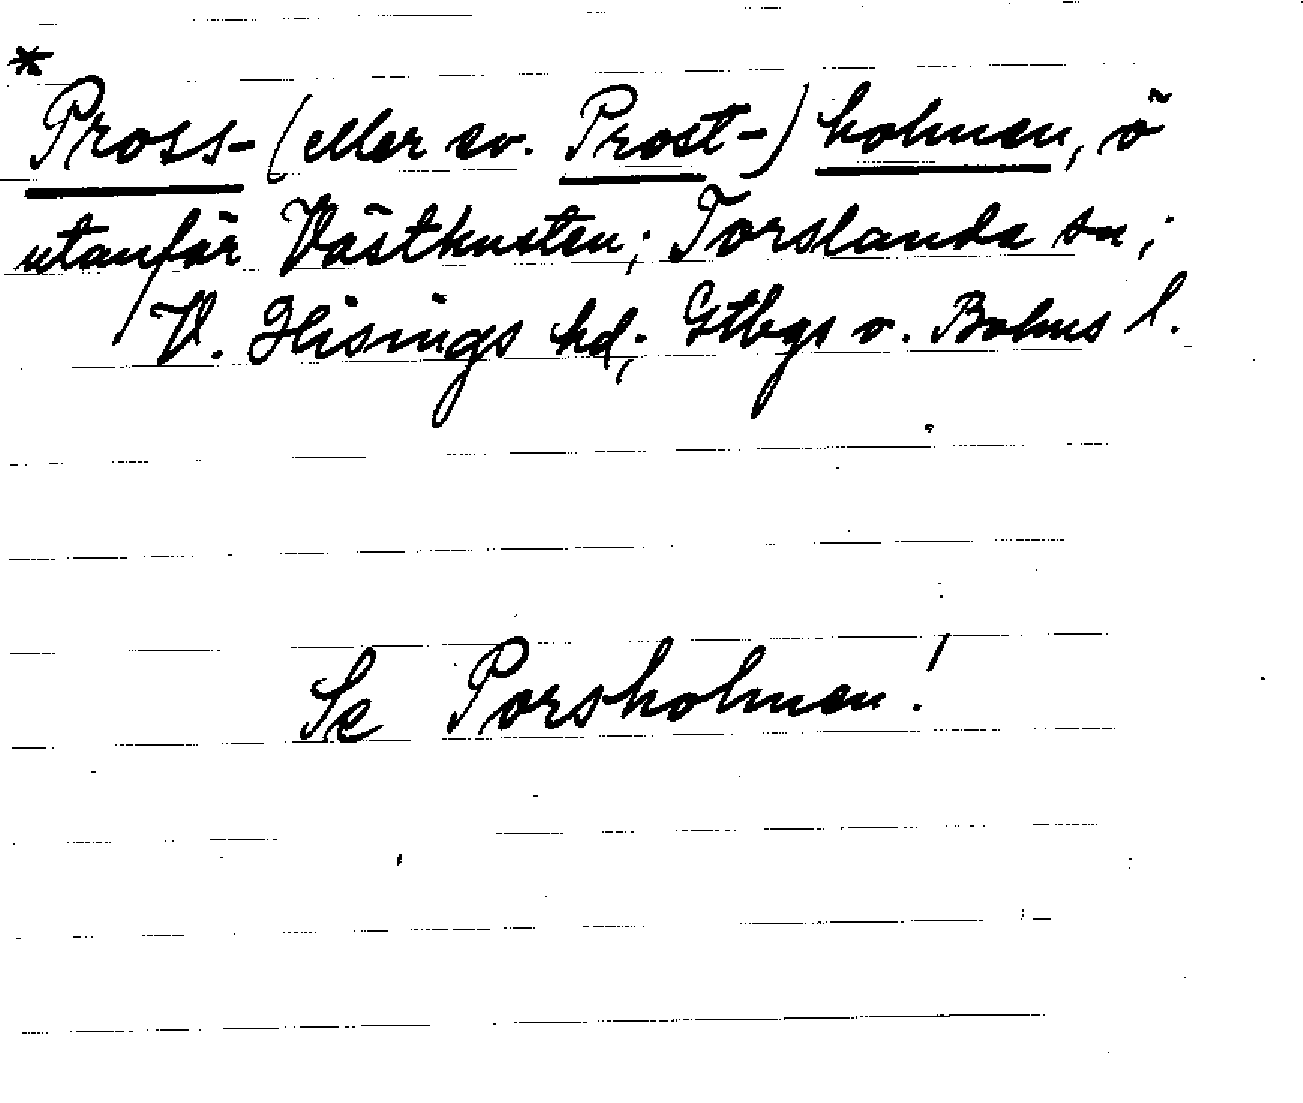 * Pross- (eller ev. Prost-) holmen, ö
utanför Västkusten; Torslanda sn;
V. Hisings hd; Gtbgs o. Bohus l.
Se Porsholmen!